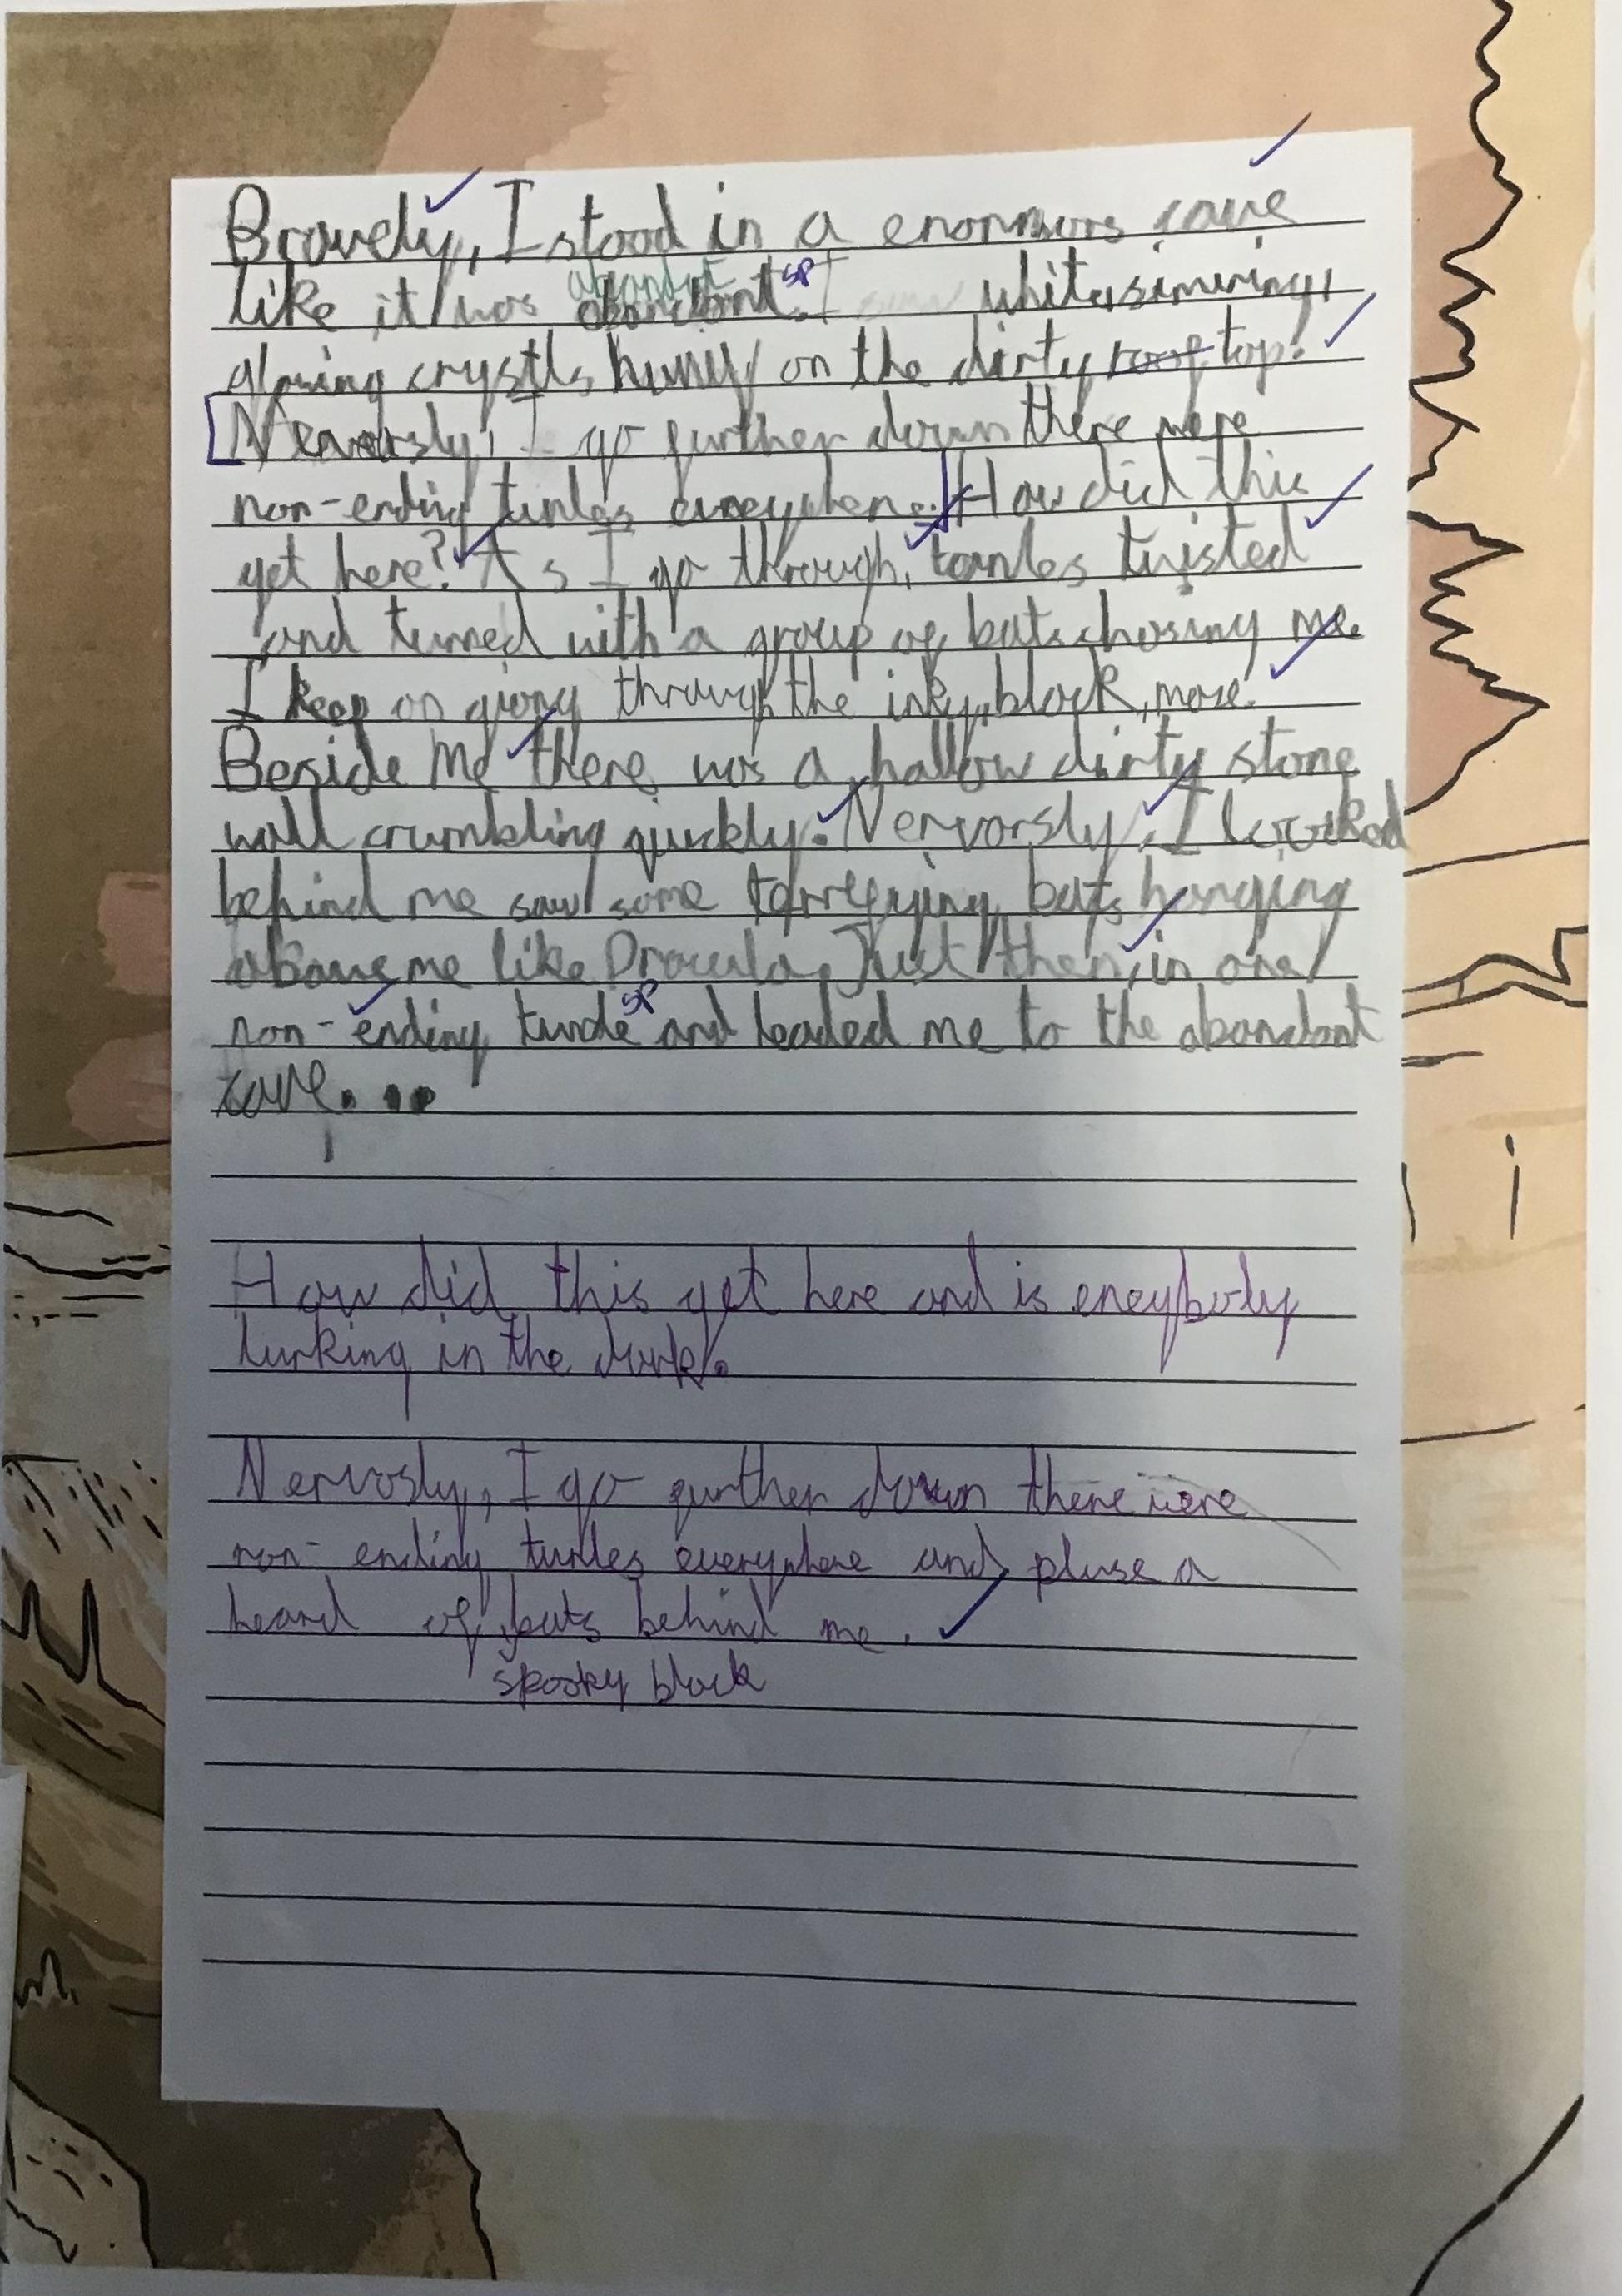 Bravely, I stood in a enormors cave
abandat
like it was abandont. sp white, simiring,
glowing crystls hung on the dirty roof top.
Nervorsly, I go further down there were
non-ending tunles everywhere. How did this
get here? As I go through, tounles twisted
and turned with a group of bats chasing me.
I keep on giong through the inky, black, maze.
Beside me there was a hallow dirty stone
wall crumbling quickly. Nervorsly, I looked
behind me saw some terrifying bats hanging
above me like Dracula. Just then, in one
sp
non-ending tunle and leaded me to the abandont
cave...
How did this get here and is eneybody
lurking in the dark.
Nervosly, I go further down there were
non-ending tunles everywhere and pluse a
heard of bats behind me.
spooky black